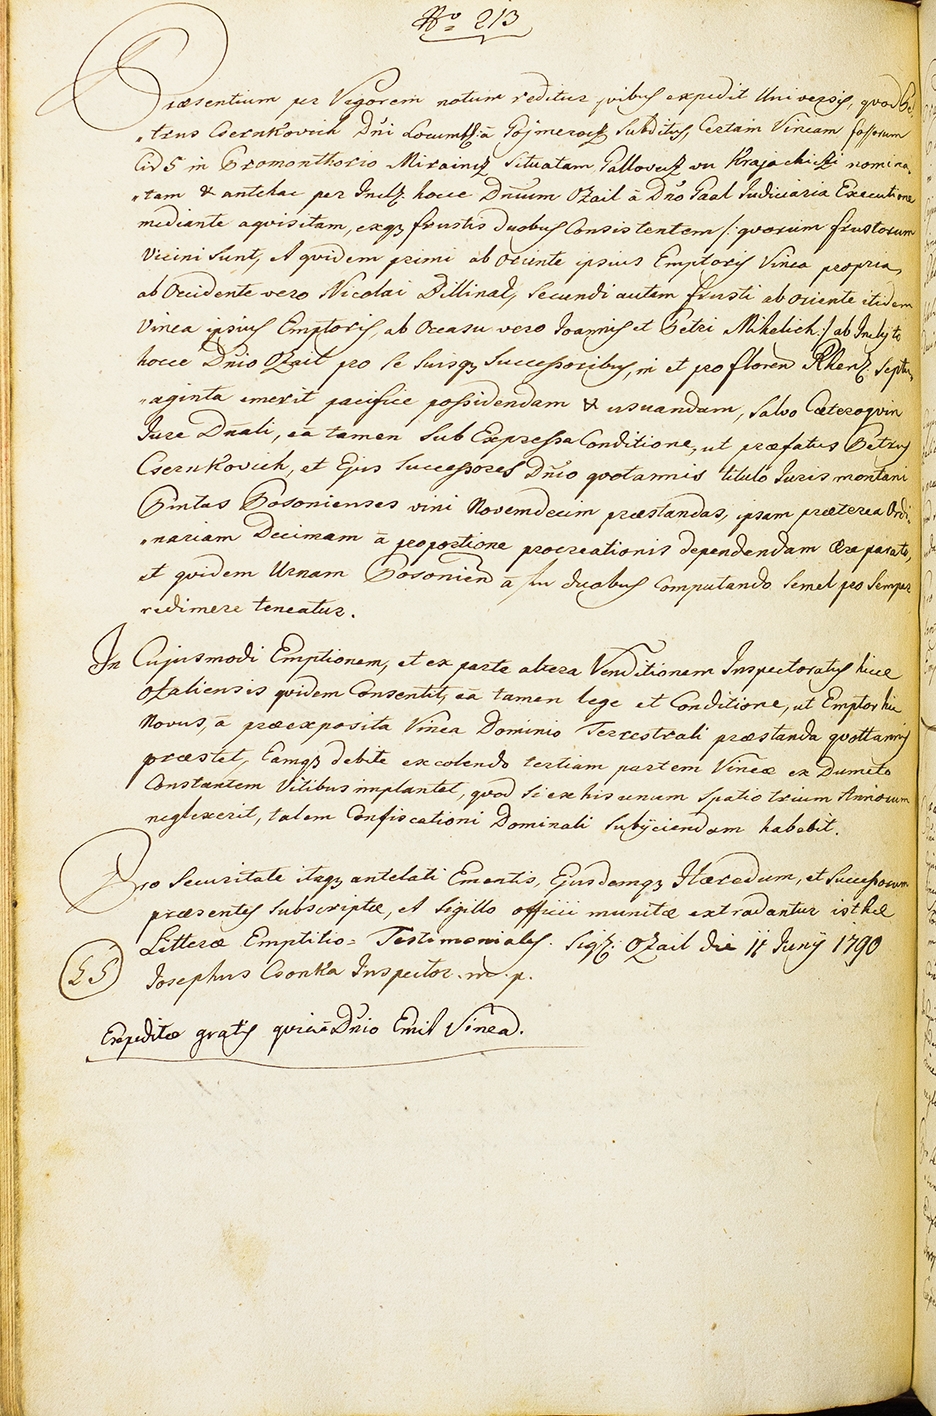 Nro 213
Præsentium per Vigorem notum redditur quibus expedit Universis, quod Pe,
,,trus Csernkovich Dni Subditus, Certam Vineam fossorum
in Promonthorio Situatam nomina,
,,tam & antehac per hocce Dnium Ozail à Dno Gaal Judiciaria Executione
mediante aquisitam, exq frustis duobus Consistentem /: quorum frustorum
Vicini sunt, A quidem primi ab oriente ipsius Emptoris Vinea propria,
ab Occidente vero Nicolai Billinal, Secundi autem frusti ab oriente itidem
Vinea ipsius Emptoris, ab Occasu vero Joannis et Petri Mikelich :/ ab Inclyto
hocce Dnio Ozail pro se suisq Successoribus, in et pro floren Rhen. Septu,
,,aginta emerit pacifice possidendam & usuandam, salvo Cæteroquin
Jure Dnali, eâ tamen sub Expressa Conditione, ut præfatus Petrus
Csernkovich, et Ejus Successores Dnio quotannis titulo Juris montani
Pintas Posonienses vini Novemdecim præstandas, ipsam præterea Ordi,
,,nariam Decimam à proportione procreationis dependendam ære parato,
et quidem Urnam Posonien à duobus Computando Semel pro Semper
redimere teneatur.
In Cujusmodi Emptionem, et ex parte altera Venditionem Inspectoratus hicce
Ozaliensis quidem Consentit, eâ tamen lege et Conditione, ut Emptor hic
Novus, à præexposita Vinea Dominio Terrestrali præstanda quottannis
præstet, Eamq debite excolendo tertiam partem Vineæ ex Dumeto
Constantem Vitibus implantet, quod si ex his unum spatio trium Annorum
neglexerit, talem Confiscationi Dominali subijciendam habebit.
Pro Securitate itaq antelati Ementis, Ejusdemq Hæredum, et Successorum
præsentes subscriptæ, et Sigillo officii munitæ extradantur isthæ
Litteræ Emptitio= Testimoniales. Sig. Ozail die 11 Junij 1790
LS Josephus Csonka Inspector m. p.
Expeditæ gratis quia Dnio Emit Vinea.